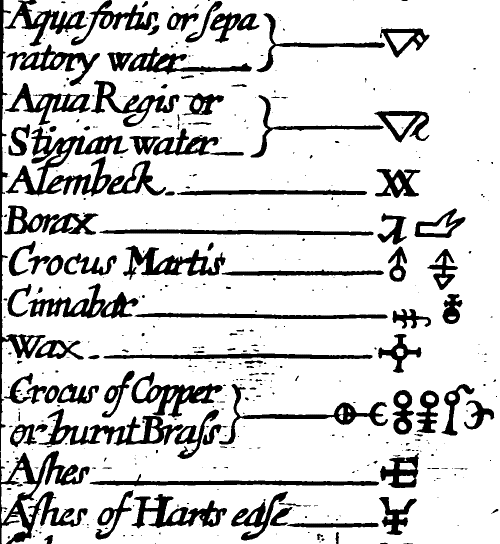 Aqua fortis, or ſepa
ratory water
Aqua Regis or
Stygian water
Alembeck.
Borax
Crocus Martis
Cinnabar
Wax
Crocus of Copper
or burnt Braſs
Aſhes
Aſhes of Harts eaſe